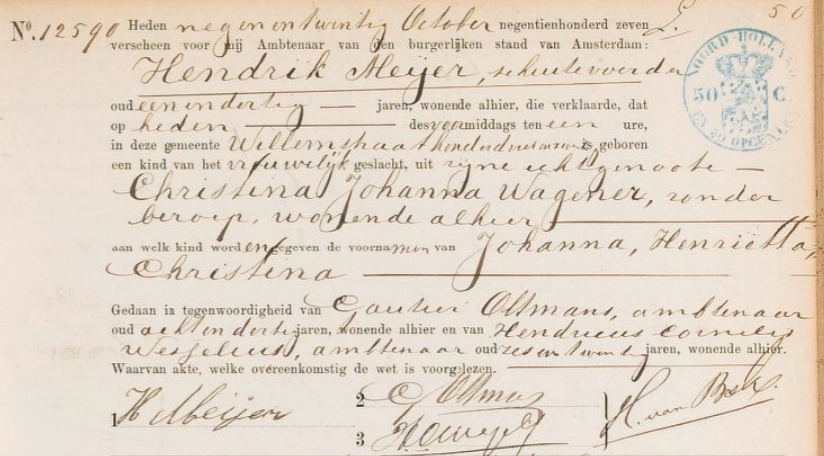 No. 12590 Heden negen en twintig October negentienhonderd zeven
verscheen voor mij Ambtenaar van den burgerlijken stand van Amsterdam:
Hendrik Meijer, schuitevoerder
oud een en dertig jaren, wonende alhier, die verklaarde, dat
op heden des voormiddags ten een ure,
in deze gemeente Willemstraat honderd is geboren
een kind van het vrouwelijk geslacht, uit zijne echtgenoote
Christina Johanna Wagener, zonder
beroep, wonende alhier
aan welk kind worden gegeven de voornamen van Johanna, Henrietta,
Christina
Gedaan in tegenwoordigheid van Oltmans, ambtenaar
oud acht en dertig jaren, wonende alhier en van Hendricus Cornelis
Wesselius, ambtenaar oud zes en twintig jaren, wonende alhier.
Waarvan akte, welke overeenkomstig de wet is voorgelezen.
1 H Meijer
2 Oltmans
3
H. van
50
NOORD-HOLLAND
50 C
EN 38 OPCEN